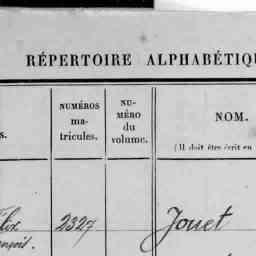 RÉPERTOIRE ALPHABÉTIQU
NUMÉROS
ma-
tricules.
NU-
MÉRO
du
volume.
NOM.
(Il doit être écrit en
s.
2327
Jouet